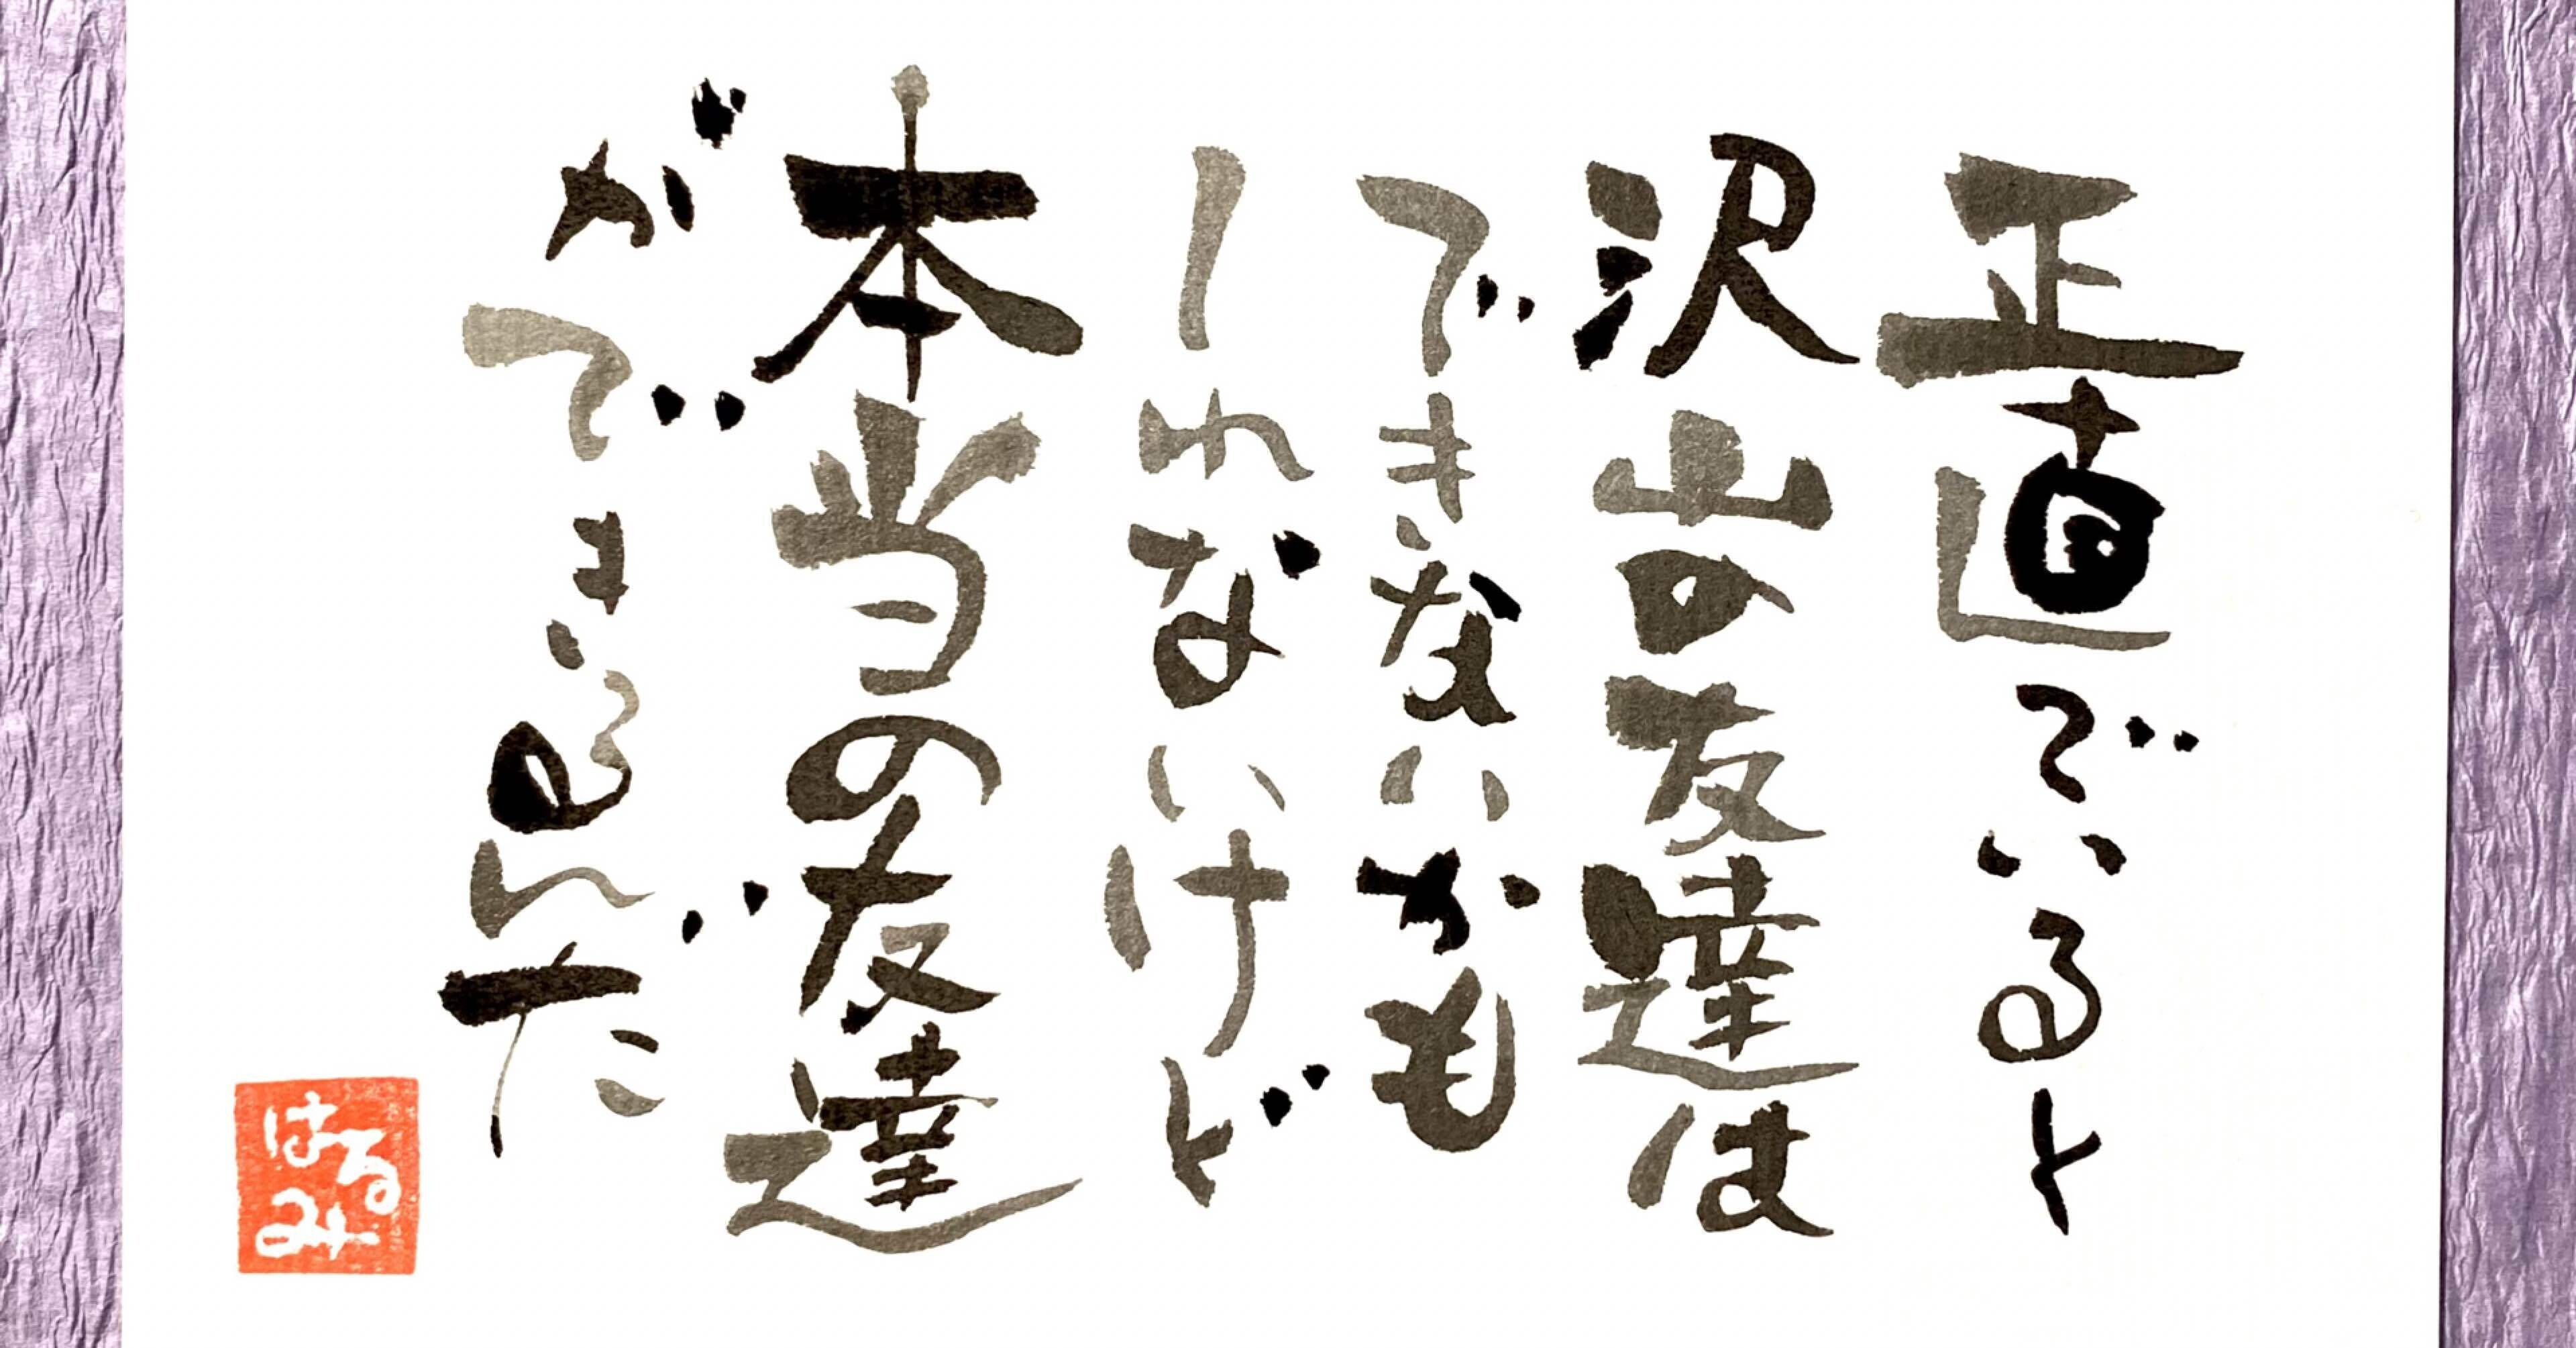 正直でいると
沢山の友達は
できないかも
しれないけど
本当の友達
ができるんだ
はるみ